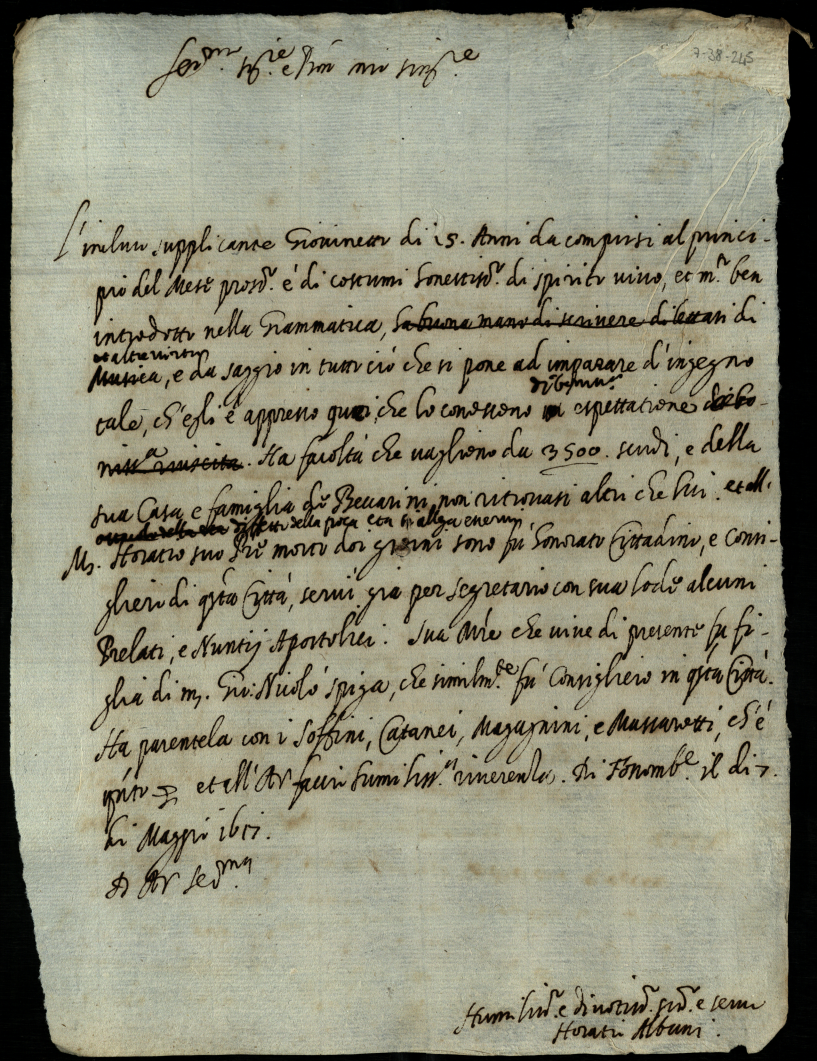 7-38-245
Ser.mo Sig.re e Pron mio sing.re
L'incluso supplicante Giovinetto di 15. Anni da compirsi al princi-
pio del Mese pross.o é di costumi honestiss.i di spirito vivo, et m.to ben
introdotto nella Grammatica, ha buona mano di scrivere di lettari di
et altre virtù
Musica, e da saggio in tutto ciò che si pone ad imparare d'ingegno
di bonis.a
tale, ch'egli è appresso quei, che lo conoscono espettatione di bo-
niss.a riuscita. Ha facoltà che vagliono da 3500. scudi, e della
sua Casa e famiglia de Beccarini, non ritrovasi altri che lui. et all'
della poca età
M. Horatio suo Pre morto doi giorni sono fú honorato Cittadino, e Consi-
gliero di qsta Città, serví gia per segretario con sua lode alcuni
Prelati, e Nuntij Apostolici. Sua Mre che vive di presente fu fi-
glia di m. Gio: Nicoló Spiga, che similm.te fú Consigliero in qsta Città.
Ha parentela con i Soffini, Catanei, Magagnini, e Massaretti, ch'é
qnto et all'AV faccio humiliss.a riverenza. Di Fosomb.e il di 7.
di Maggio 1617.
D AV Ser.ma
Humiliss.o e divotiss.o sud.o e serv.
Horatio Albani.